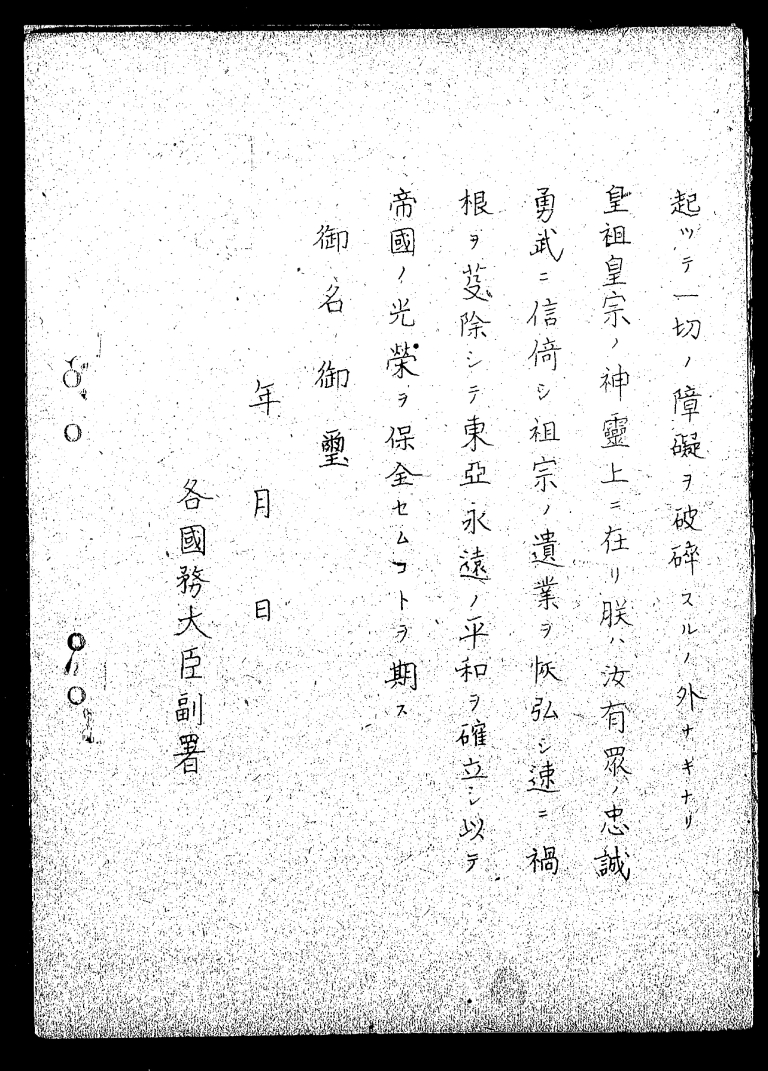 起ツテ一切ノ障礙ヲ破碎スルノ外ナキナリ
皇祖皇宗ノ神靈上ニ在リ朕ハ汝有眾ノ忠誠
勇武ニ信倚シ祖宗ノ遺業ヲ恢弘シ速ニ禍
根ヲ芟除シテ東亞永遠ノ平和ヲ確立シ以テ
帝國ノ光榮ヲ保全セムコトヲ期ス
御名御璽
年月日
各國務大臣副署